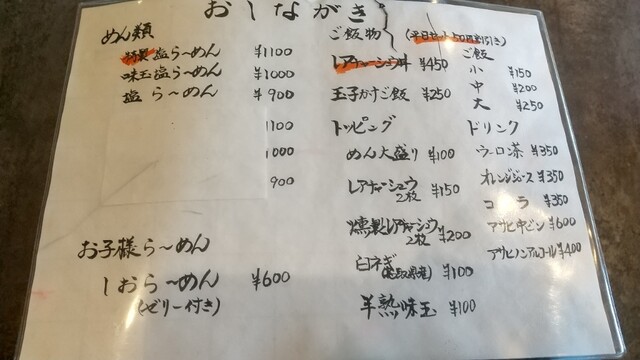 おしながき
めん類
特製塩ら〜めん ¥1100
味玉塩ら〜めん ¥1000
塩ら〜めん ¥900
1100
1000
900
お子様ら〜めん
しおら〜めん ¥600
(ゼリー付き)
ご飯物 (平日セット50円割引き)
レアチャーシュウ丼 ¥450
玉子かけご飯 ¥250
ご飯
小 ¥150
中 ¥200
大 ¥250
トッピング
めん大盛り ¥100
レアチャーシュウ 2枚 ¥150
燻製レアチャーシュウ 2枚 ¥200
白ネギ ¥100
半熟味玉 ¥100
ドリンク
ウーロン茶 ¥350
オレンジジュース ¥350
コーラ ¥350
アサヒ中ビン ¥600
アサヒノンアルコール ¥400